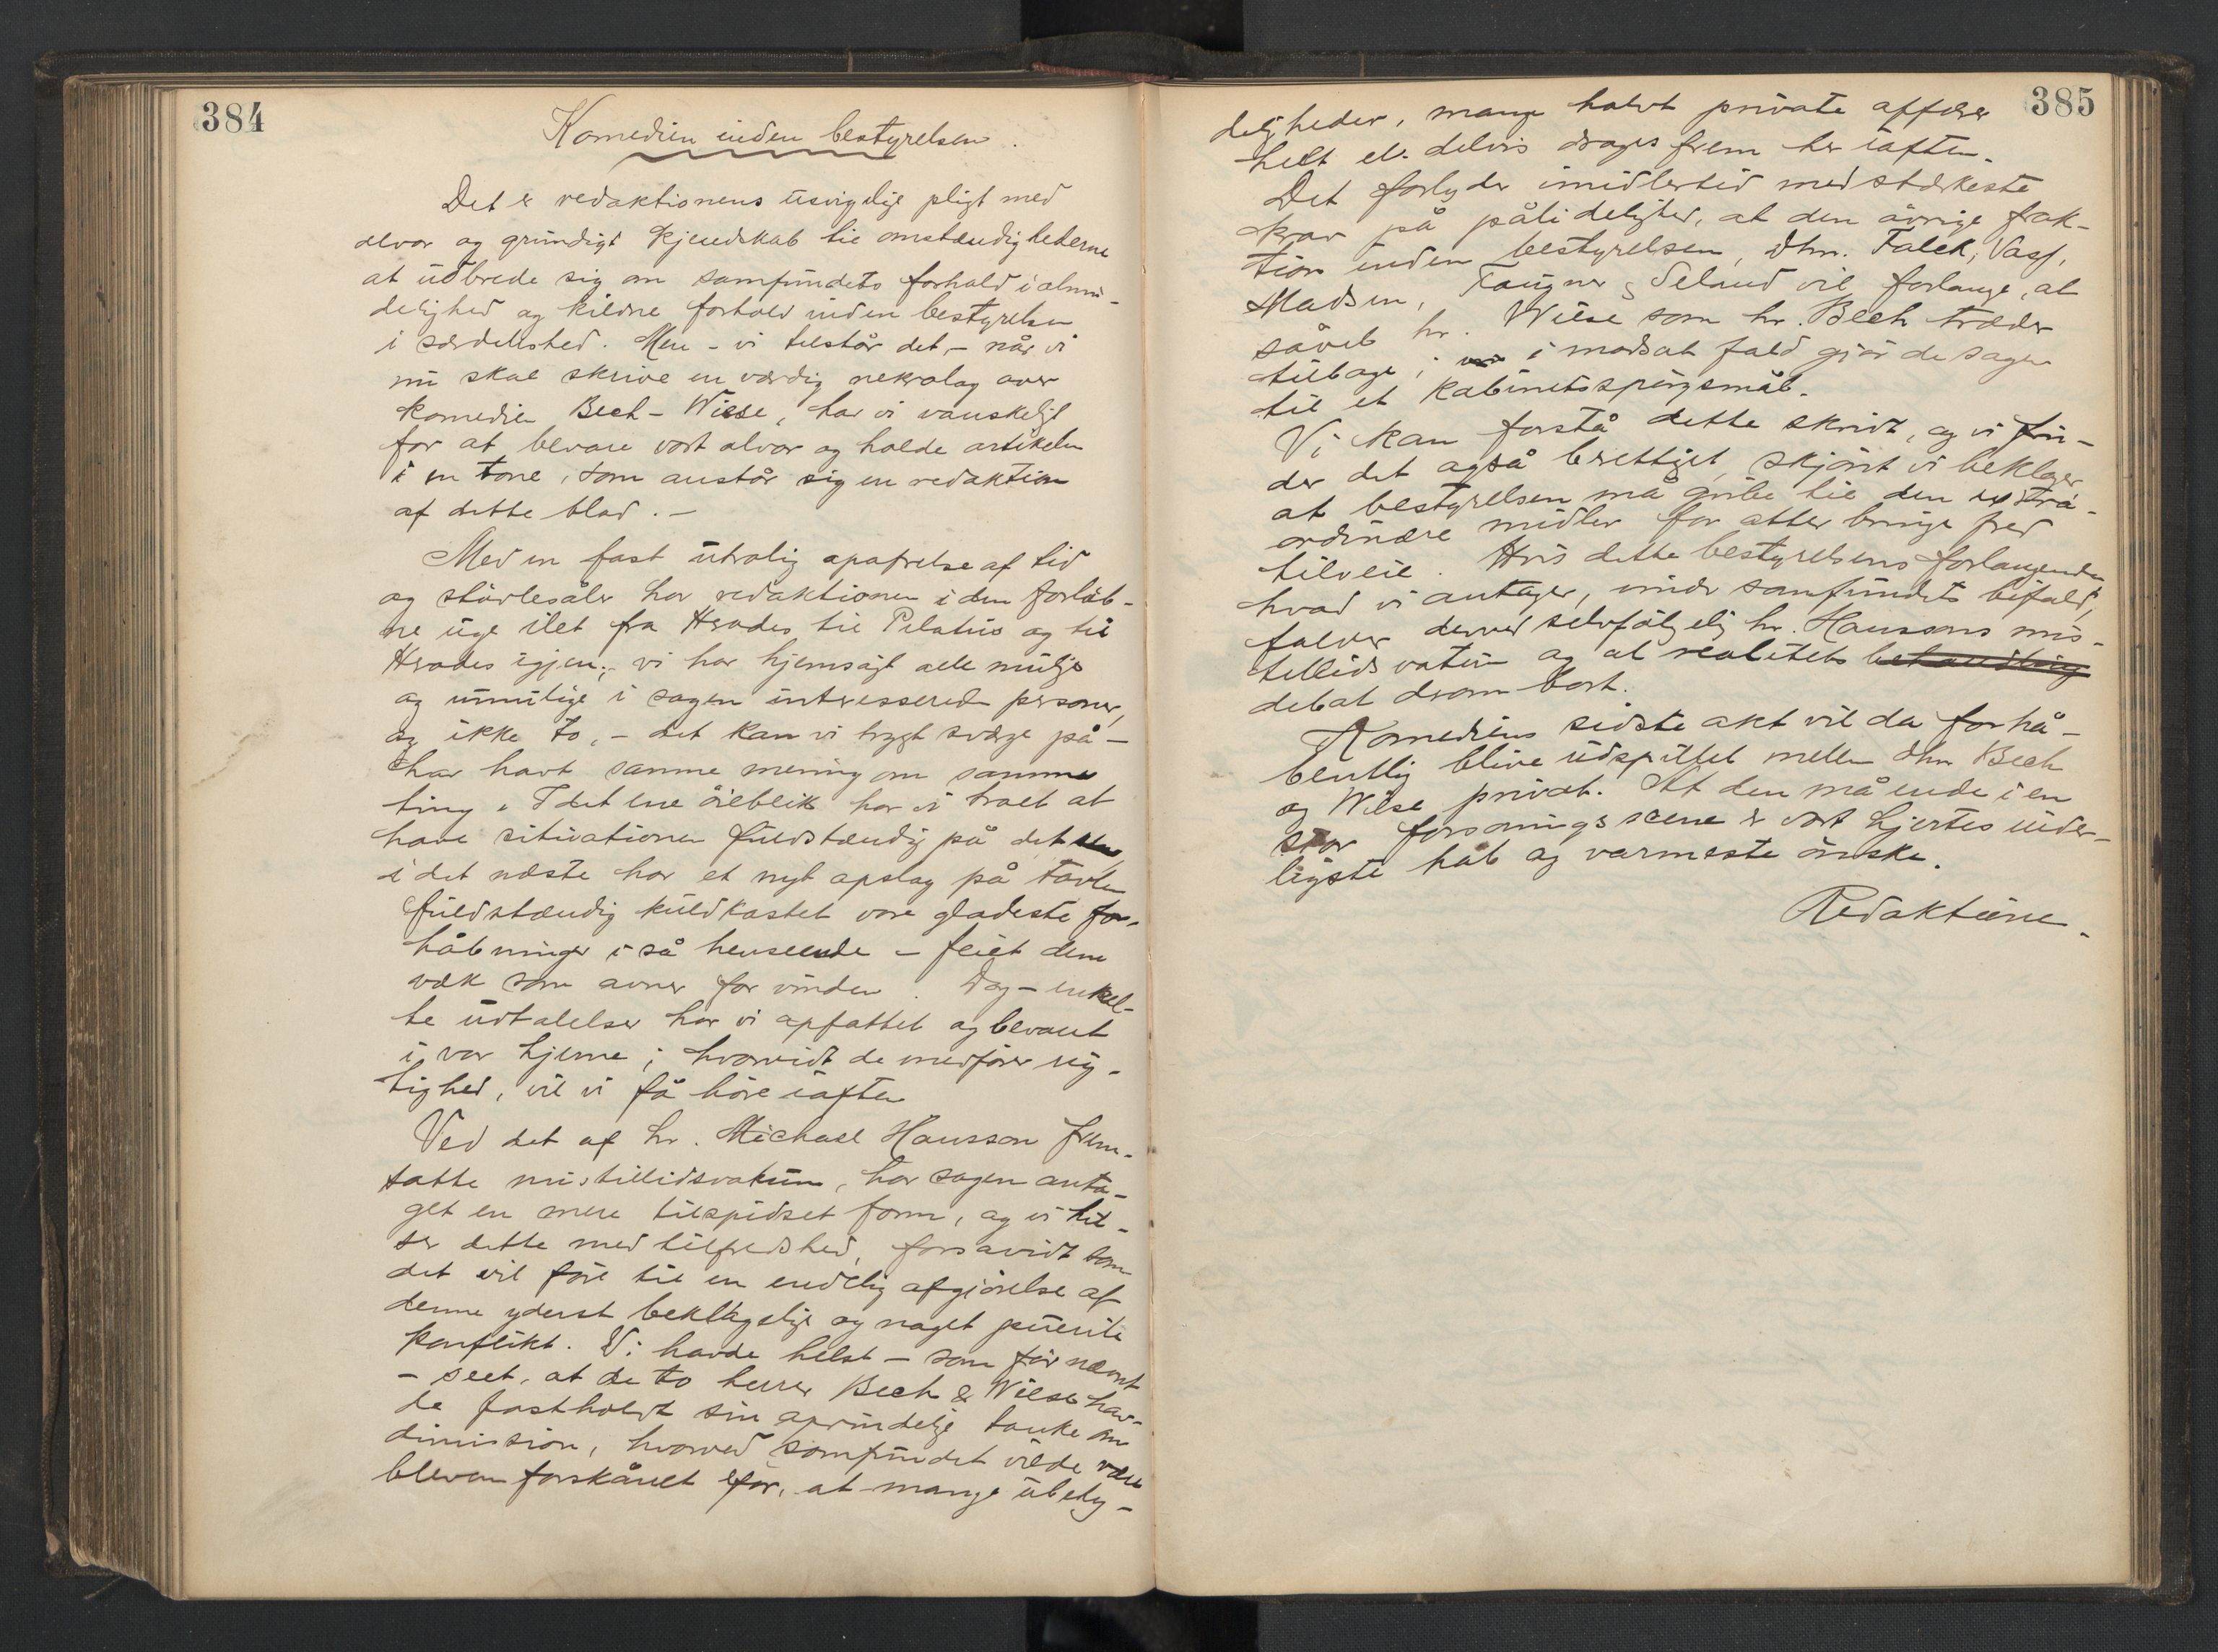 384
Komedien inden bestyrelsen.
Det er redaktionens usvigelige pligt med
alvor og grundigt kjendskab til omstændighederne
at udbrede sig om samfundets forhold i almin-
delighed og kildne forhold inden bestyrelsen
i særdeleshed. Men – vi tilstår det, – når vi
nu skal skrive en værdig nekrolog over
komedien Bech – Wiese, har vi vanskeligt
for at bevare vort alvor og holde artikelen
i en tone, som anstår sig en redaktion
af dette blad. –
Med en fast utrolig opofrelse af tid
og støvlesåler har redaktionen i den forløb-
ne uge ilet fra Herodes til Pilatus og til
Herodes igjen; vi har hjemsøgt alle mulige
og umulige i sagen interesserede personer,
og ikke to, – det kan vi trygt sværge på –
har havt samme mening om samme
ting. I det ene øieblik har vi troet at
have situationen fuldstændig på det rene
i det næste har et nyt opslag på tavlen
fuldstændig kuldkastet vore gladeste for-
håbninger i så henseende – feiet dem
væk som avner for vinden. Dog – enkel-
te udtalelser har vi opfattet og bevaret
i vor hjerne; hvorvidt de medfører rig-
tighed, vil vi få høre iaften
Ved det af hr. Michael Hansson frem-
satte mistillidsvotum, har sagen anta-
get en mere tilspidset form, og vi hil-
ser dette med tilfredshed, forsåvidt som
det vil føre til en endelig afgjørelse af
denne yderst beklagelige og noget puerile
konflikt. Vi havde helst – som før nævnt
– seet, at de to herrer Bech & Wiese hav-
de fastholdt sin oprindelige tanke om
dimission, hvorved samfundet vilde være
bleven forskånet for, at mange ubety-
385
deligheder, mange halvt private affærer
helt el. delvis drages frem her iaften.
Det forlyder imidlertid med stærkeste
krav på pålidelighed, at den øvrige frak-
tion inden bestyrelsen, d'hrr. Falck, Vasf,
Madsen, Fougner & Seland vil forlange, at
såvel hr. Wiese som hr. Bech træder
tilbage; i modsat fald gjør de sagen
til et kabinetsspørgsmål.
Vi kan forstå dette skridt, og vi fin-
der det også berettiget, skjønt vi beklager
at bestyrelsen må gribe til den extra-
ordinære midler for atter bringe fred
tilveie. Hvis dette bestyrelsens forlangende,
hvad vi antager, vinder samfundets bifald,
falder derved selvfølgelig hr. Hanssons mis-
tillidsvotum og al realitets behandling
debat derom bort.
Komediens sidste akt vil da forhå-
bentlig blive udspillet mellem d'hrr. Bech
og Wiese privat. At den må ende i en
stor forsoningsscene er vort hjertes inder-
ligste håb og varmeste ønske.
Redaktionen.